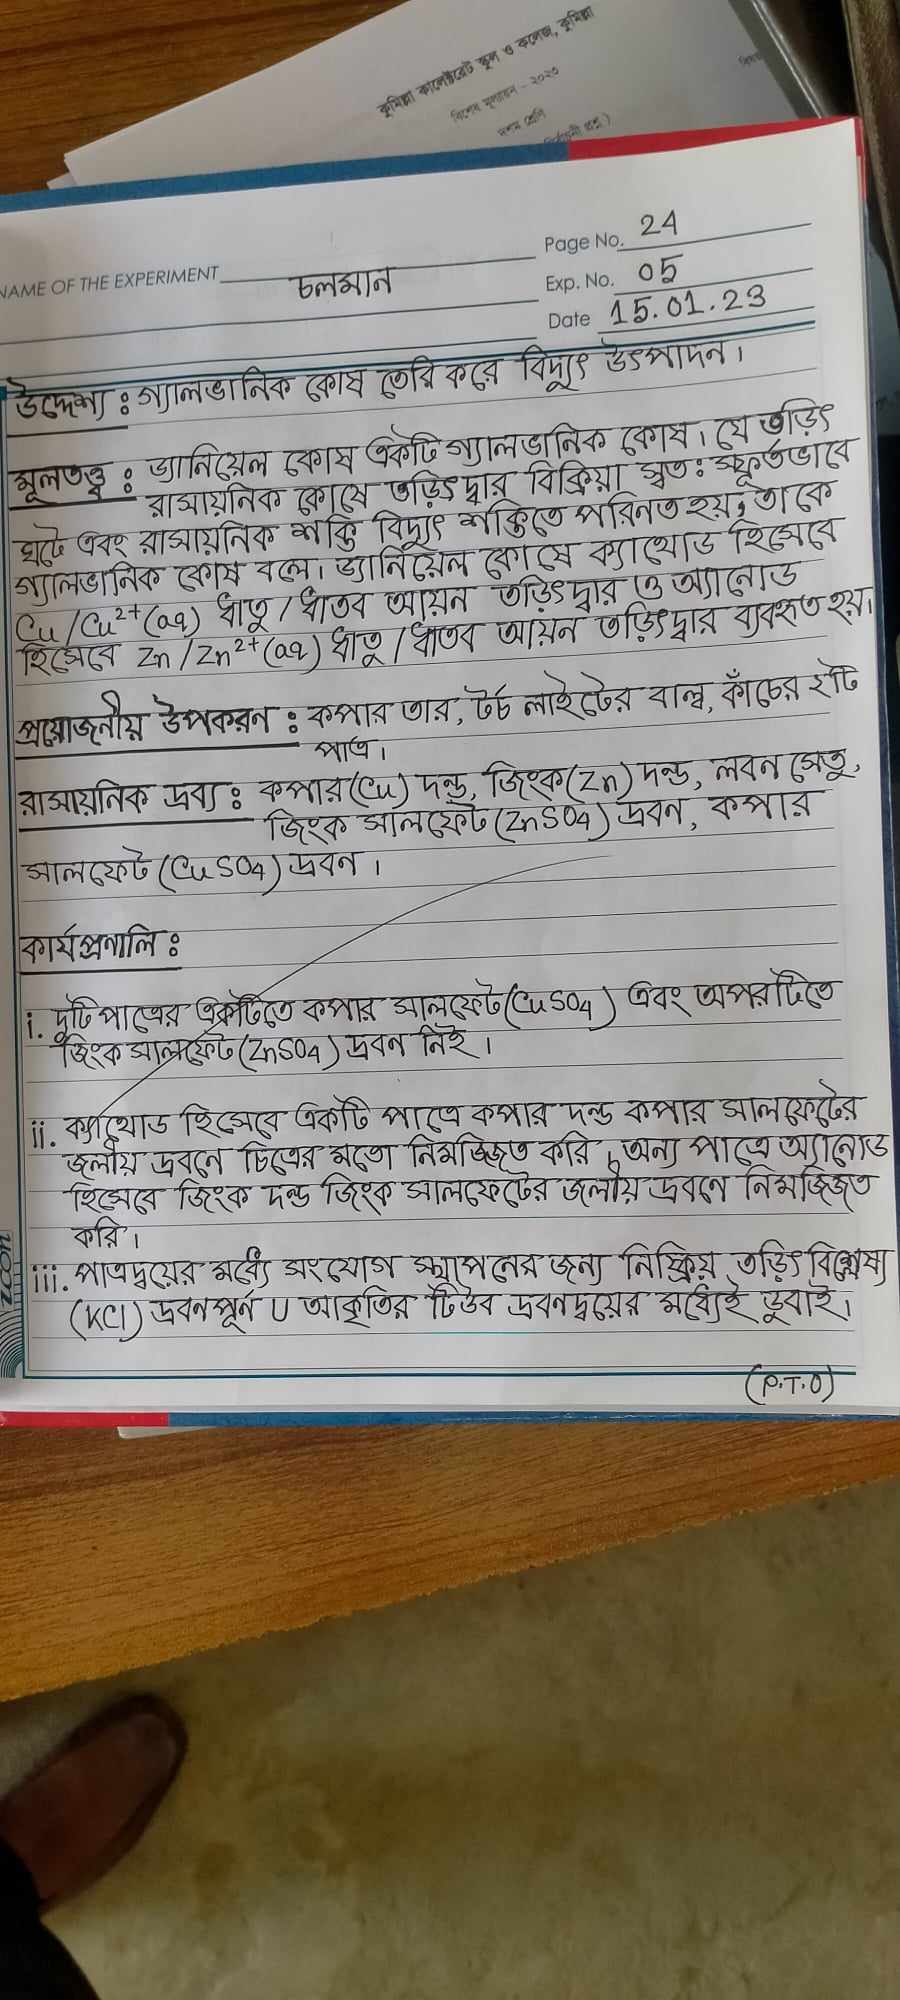 কুমিল্লা কালেক্টরেট স্কুল ও কলেজ, কুমিল্লা
বিশেষ মূল্যায়ন - ২০২৩
দশম শ্রেণি
NAME OF THE EXPERIMENT চলমান
Page No. 24
Exp. No. 05
Date 15.01.23
উদ্দেশ্য : গ্যালভানিক কোষ তেরি করে বিদ্যুৎ উৎপাদন।
মূলতত্ত্ব : ড্যানিয়েল কোষ একটি গ্যালভানিক কোষ। যে তড়িৎ
রাসায়নিক কোষে তড়িৎদ্বার বিক্রিয়া স্বত: স্ফূর্তভাবে
ঘটে এবং রাসায়নিক শক্তি বিদ্যুৎ শক্তিতে পরিনত হয়, তাকে
গ্যালভানিক কোষ বলে। ড্যানিয়েল কোষে ক্যাথোড হিসেবে
Cu/Cu2+(aq) ধাতু/ধাতব আয়ন তড়িৎদ্বার ও অ্যানোড
হিসেবে Zn/Zn2+(aq) ধাতু/ধাতব আয়ন তড়িৎদ্বার ব্যবহৃত হয়।
প্রয়োজনীয় উপকরন : কপার তার, টর্চ লাইটের বাল্ব, কাঁচের ২টি
পাত্র।
রাসায়নিক দ্রব্য : কপার(Cu) দন্ড, জিংক(Zn) দন্ড, লবন সেতু,
জিংক সালফেট(ZnSO4) দ্রবন, কপার
সালফেট(CuSO4) দ্রবন।
কার্যপ্রনালি :
i. দুটি পাত্রের একটিতে কপার সালফেট(CuSO4) এবং অপরটিতে
জিংক সালফেট(ZnSO4) দ্রবন নিই।
ii. ক্যাথোড হিসেবে একটি পাত্রে কপার দন্ড কপার সালফেটের
জলীয় দ্রবনে চিত্রের মতো নিমজ্জিত করি। অন্য পাত্রে অ্যানোড
হিসেবে জিংক দন্ড জিংক সালফেটের জলীয় দ্রবনে নিমজ্জিত
করি।
iii. পাত্রদ্বয়ের মধ্যে সংযোগ স্থাপনের জন্য নিস্ক্রিয় তড়িৎ বিশ্লেষ্য
(KCl) দ্রবনপূর্ন U আকৃতির টিউব দ্রবনদ্বয়ের মধ্যেই ডুবাই।
(P.T.O)